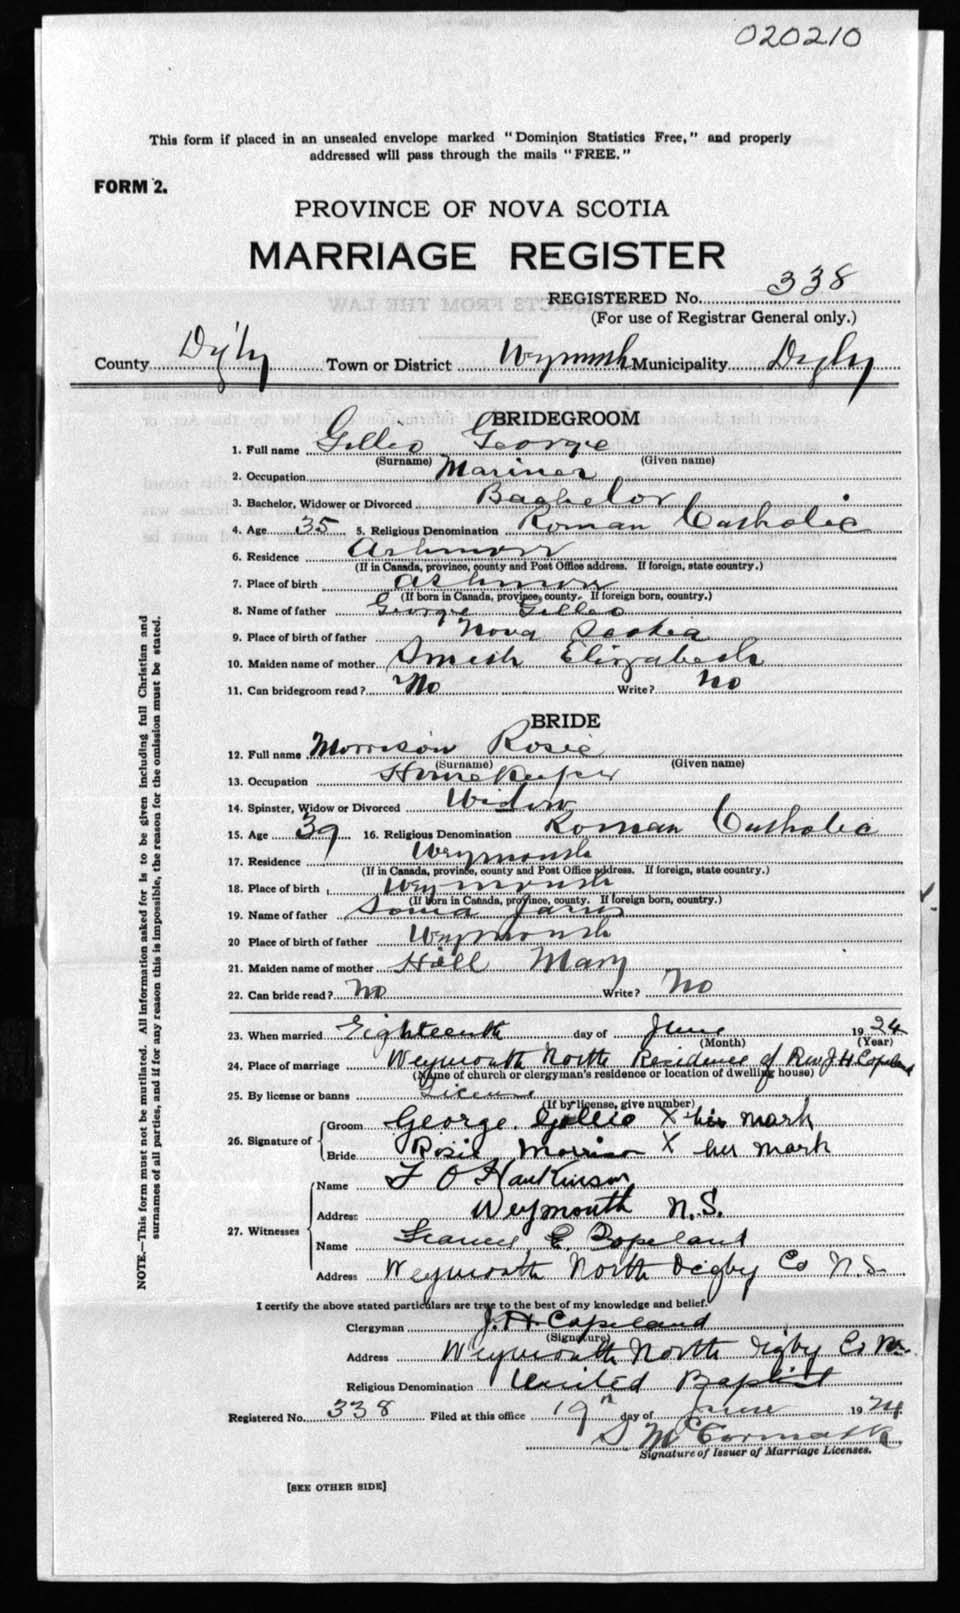 020210
This form if placed in an unsealed envelope marked "Dominion Statistics Free," and properly
addressed will pass through the mails "FREE."
FORM 2.
PROVINCE OF NOVA SCOTIA
MARRIAGE REGISTER
REGISTERED No. 338
(For use of Registrar General only.)
County Digby Town or District Wymuth Municipality Digby
BRIDEGROOM
1. Full name Gillis George
(Surname) (Given name)
2. Occupation Mariner
3. Bachelor, Widower or Divorced Bachelor
4. Age 35 5. Religious Denomination Roman Catholic
6. Residence Ashmore
(If in Canada, province, county and Post Office address. If foreign, state country.)
7. Place of birth Ashmore
(If born in Canada, province, county. If foreign born, country.)
8. Name of father George Gillis
9. Place of birth of father Nova Scotia
10. Maiden name of mother Smith Elizabeth
11. Can bridegroom read? No Write? No
BRIDE
12. Full name Morrison Rosie
(Surname) (Given name)
13. Occupation Housekeeper
14. Spinster, Widow or Divorced Widow
15. Age 39 16. Religious Denomination Roman Catholic
17. Residence Weymouth
(If in Canada, province, county and Post Office address. If foreign, state country.)
18. Place of birth Weymouth
(If born in Canada, province, county. If foreign born, country.)
19. Name of father
20 Place of birth of father Weymouth
21. Maiden name of mother Hall Mary
22. Can bride read? No Write? No
23. When married Eighteenth day of June 1924
(Month) (Year)
24. Place of marriage Weymouth North Residence of Rev J H Copeland
(Name of church or clergyman's residence or location of dwelling house)
25. By license or banns License
(If by license, give number)
26. Signature of Groom George Gillis X his mark
Bride Rosie Morrison X her mark
27. Witnesses Name F O Hankinson
Address Weymouth N.S.
Name Frances E. Copeland
Address Weymouth North Digby Co N.S.
I certify the above stated particulars are true to the best of my knowledge and belief.
Clergyman J. H. Copeland
(Signature)
Address Weymouth North Digby Co N.S.
Religious Denomination United Baptist
Registered No. 338 Filed at this office 19th day of June 1924
S McCormack
Signature of Issuer of Marriage Licenses.
[SEE OTHER SIDE]
NOTE.—This form must not be mutilated. All information asked for is to be given including full Christian and
surnames of all parties, and if for any reason this is impossible, the reason for the omission must be stated.